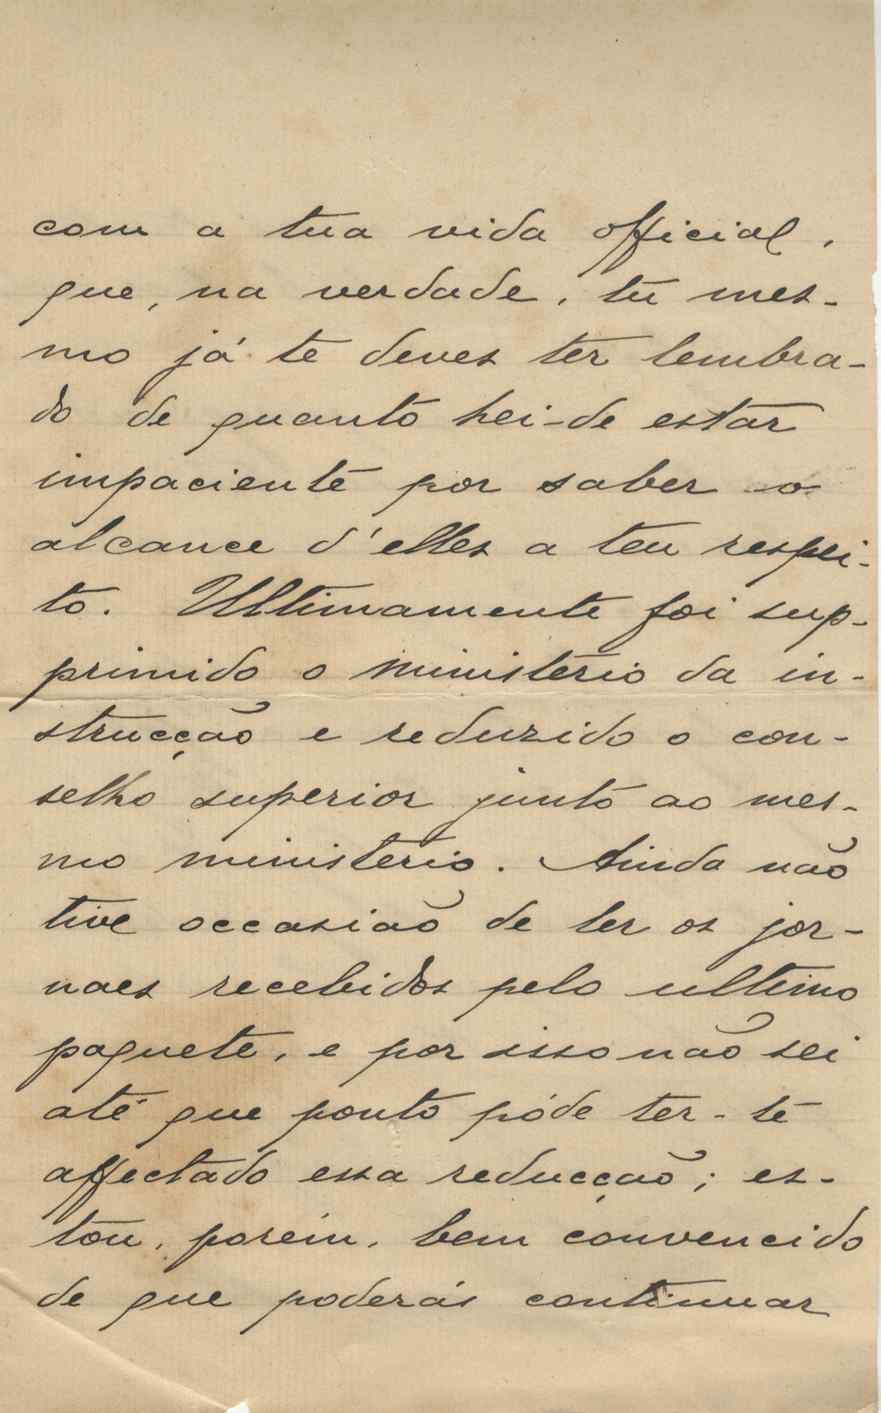 com a tua vida official,
que, na verdade, tu mes-
mo já te deves ter lembra-
do de quanto hei-de estar
impaciente por saber o
alcance d'elles a teu respei-
to. Ultimamente foi sup-
primido o ministerio da in-
strucção e reduzido o con-
selho superior junto ao mes-
mo ministerio. Ainda não
tive occasião de ler os jor-
naes recebidos pelo ultimo
paquete, e por isso não sei
até que ponto póde ter-te
affectado essa reducção; es-
tou, porém, bem convencido
de que poderás continuar